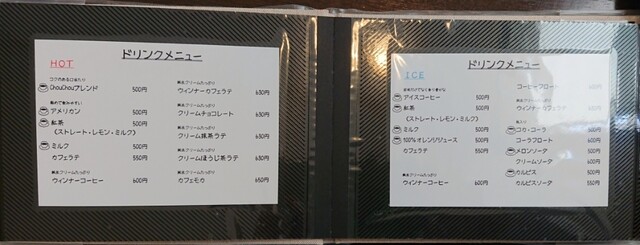 ドリンクメニュー
HOT
コクのある口当たり
ChouChouブレンド 500円
アメリカン 500円
紅茶 500円
(ストレート・レモン・ミルク)
ミルク 500円
カフェラテ 550円
生クリームたっぷり
ウィンナーコーヒー 600円
生クリームたっぷり
ウィンナーカフェラテ 630円
生クリームたっぷり
クリームチョコレート 630円
生クリームたっぷり
クリーム抹茶ラテ 630円
生クリームたっぷり
クリームほうじ茶ラテ 630円
生クリームたっぷり
カフェモカ 650円
ドリンクメニュー
ICE
アイスコーヒー 500円
紅茶 500円
(ストレート・レモン・ミルク)
ミルク 500円
100%オレンジジュース 500円
カフェラテ 550円
生クリームたっぷり
ウィンナーコーヒー 600円
コーヒーフロート
生クリームたっぷり
ウィンナーカフェラテ
コカ・コーラ
コーラフロート 600円
メロンソーダ 500円
クリームソーダ 600円
カルピス 500円
カルピスソーダ 550円